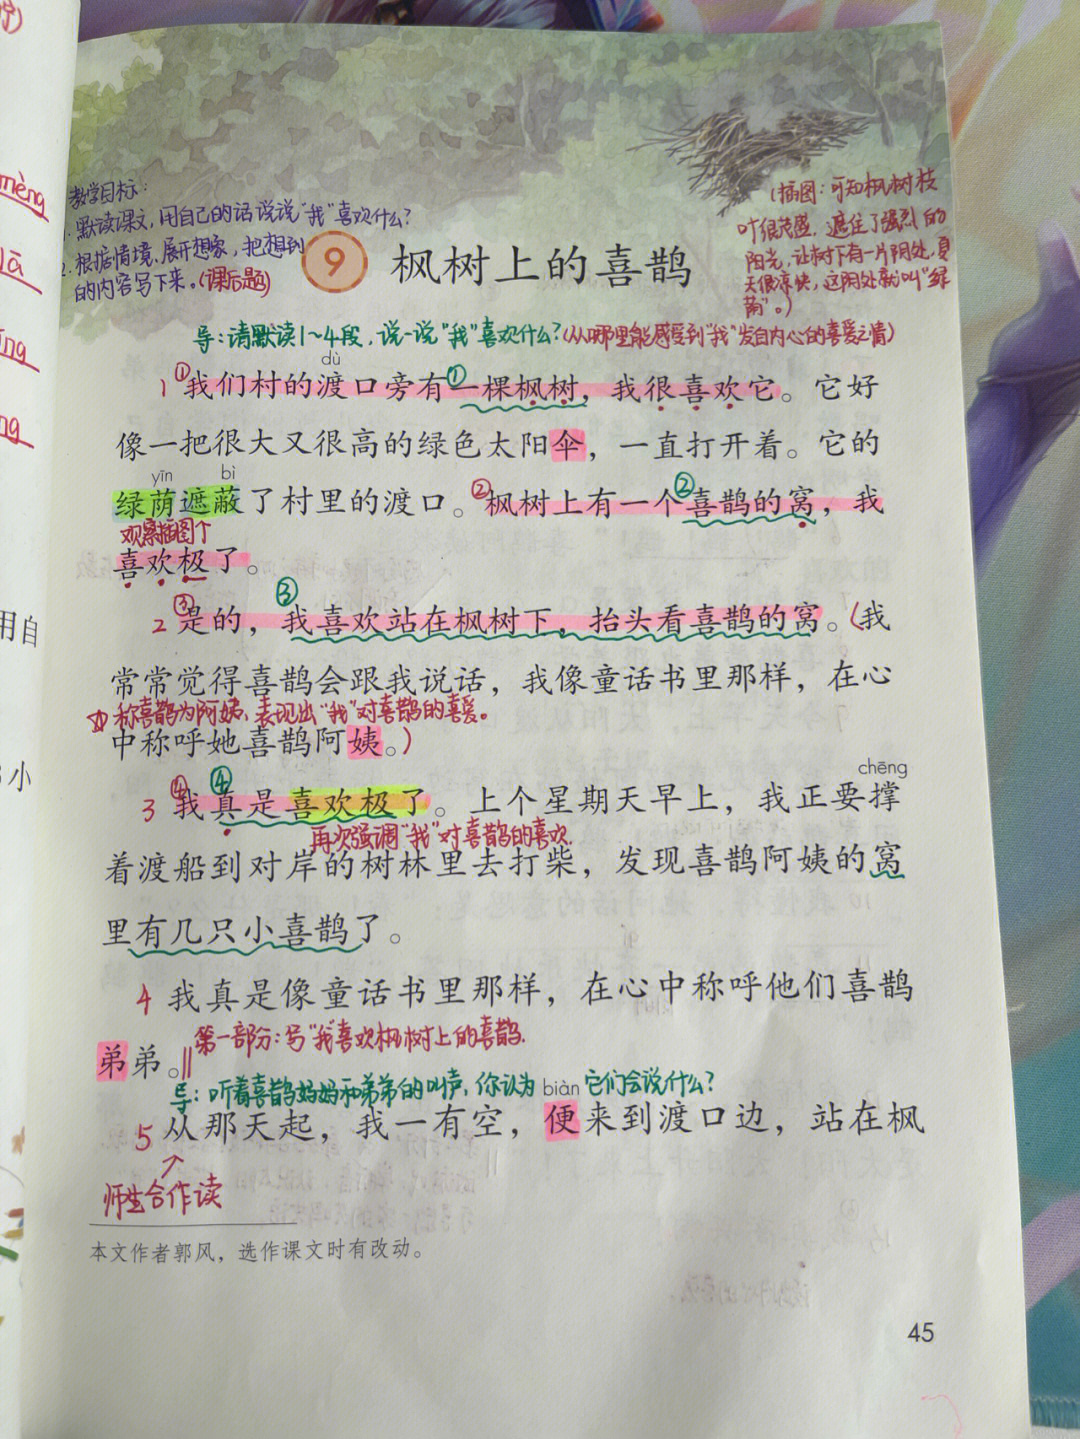 mèng
教学目标:
1. 默读课文,用自己的话说说"我"喜欢什么?
2. 根据情境、展开想象,把想到的内容写下来。(课后题)
(插图:可知枫树枝
叶很茂盛,遮住了强烈的
阳光,让树下有一片阴处,夏
天很凉快,这阴处就叫"绿
荫"。)
9 枫树上的喜鹊
导:请默读1~4段,说一说"我"喜欢什么?(从哪里能感受到"我"发自内心的喜爱之情)
dù
1 ①我们村的渡口旁有①一棵枫树,我很喜欢它。它好
像一把很大又很高的绿色太阳伞,一直打开着。它的
yīn bì
绿荫遮蔽了村里的渡口。②枫树上有一个②喜鹊的窝,我
观察插图个
喜欢极了。
2 ③是的,③我喜欢站在枫树下,抬头看喜鹊的窝。(我
常常觉得喜鹊会跟我说话,我像童话书里那样,在心
称喜鹊为阿姨、表现出"我"对喜鹊的喜爱。
中称呼她喜鹊阿姨。)
chēng
3 ④我④真是喜欢极了。上个星期天早上,我正要撑
再次强调"我"对喜鹊的喜欢.
着渡船到对岸的树林里去打柴,发现喜鹊阿姨的窝
里有几只小喜鹊了。
4 我真是像童话书里那样,在心中称呼他们喜鹊
弟弟。‖第一部分:写"我"喜欢枫树上的喜鹊.
导:听着喜鹊妈妈和弟弟的叫声,你认为它们会说什么?
biàn
5 从那天起,我一有空,便来到渡口边,站在枫
师生合作读
本文作者郭风,选作课文时有改动。
45
用自
小